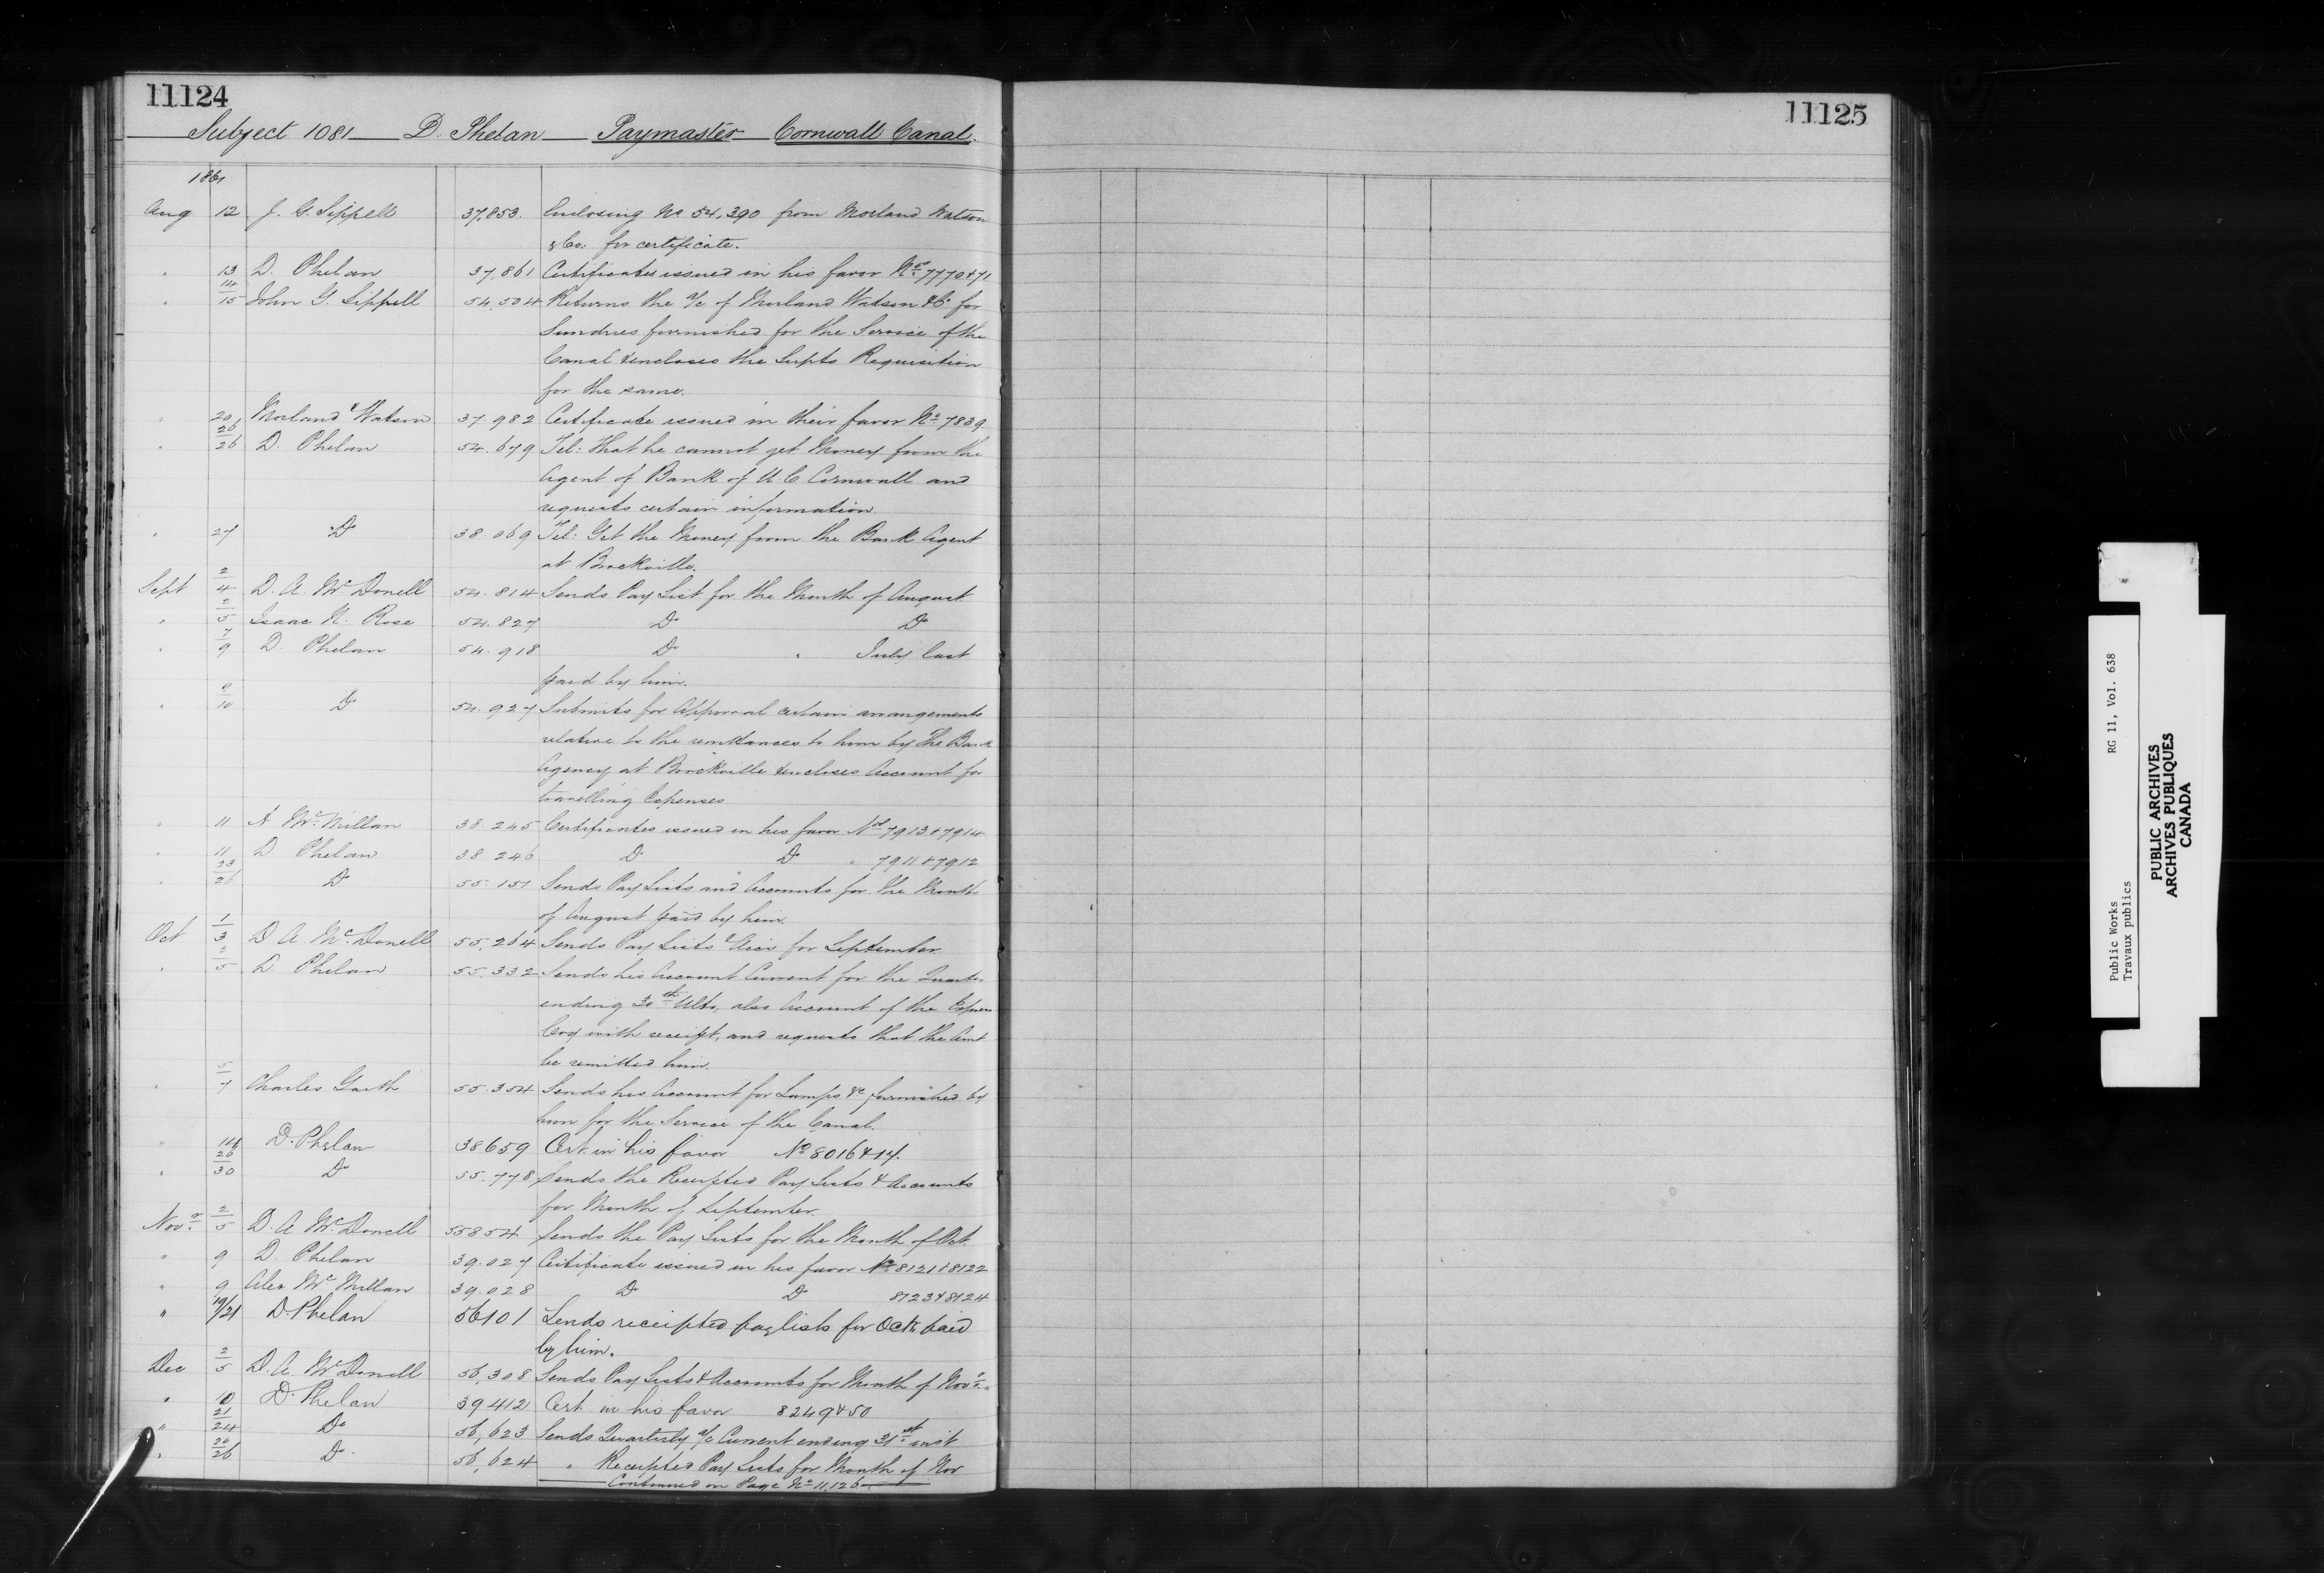 11124
Subject 1081 D. Phelan Paymaster Cornwall Canal.
1861
Aug 12 J. G. Sippell 37,853. Enclosing No 54,390 from Morland Watson
& Co: for certificate.
" 13 D. Phelan 37,861 Certificates issued in his favor Nos 7770 & 71
" 14/15 John G. Sippell 54,504 Returns the a/c of Morland Watson & Co for
Sundries furnished for the Service of the
Canal & encloses the Supts Requisition
for the same.
" 20 Morland & Watson 37.982 Certificate issued in their favor No 7839
" 26/26 D. Phelan 54.679 Tel: That he cannot get Money from the
Agent of Bank of U.C Cornwall and
requests certain information
" 27 Do 38.069 Tel: Get the Money from the Bank Agent
at Brockville.
Sept 2/4 D. A. McDonell 54.814 Sends Pay List for the Month of August
" 2/5 Isaac N. Rose 54.827 Do Do
" 7/9 D. Phelan 54.918 Do " July last
paid by him.
" 9/10 Do 54.927 Submits for Approval certain arrangements
relative to the remittances to him by The Bank
Agency at Brockville & encloses Account for
travelling Expenses
" 11 A McMillan 38.245 Certificates issued in his favor Nos 7913 & 7914
" 11 D Phelan 38.246 Do Do " 7911 & 7912
" 23/26 Do 55.151 Sends Pay Lists and Accounts for the Month
of August paid by him.
Oct 1/3 D A. McDonell 55,264 Sends Pay Lists & Accs for September
" 2/5 D Phelan 55.332 Sends his Account Current for the Quarter
ending 30th Ulto, also Account of the Express
Coy with receipt, and requests that the Amt
be remitted him.
" 5/7 Charles Garth 55.354 Sends his Account for Lamps &c furnished by
him for the Service of the Canal.
" D. Phelan 38659 Cert. in his favor No 8016 & 17.
" 26/30 Do 55.778 Sends the Receipted Pay Lists & Accounts
for Month of September.
Novr 2/5 D. A McDonell 55854 Sends the Pay Lists for the Month of Oct.
" 9 D. Phelan 39.027 Certificate issued in his favor No 8121 & 8122
" 9 Alex McMillan 39.028 Do Do 8123 & 8124
" 19/21 D. Phelan 56101 Sends receipted paylists for Oct. paid
by him.
Dec 2/5 D. A. McDonell 56,308 Sends Pay Lists & Accounts for Month of Novr.
" 10 D. Phelan 39412 Cert in his favor 8249 & 50
" 21/24 Do 56,623 Sends Quarterly a/c Current ending 31st inst
" 20/26 Do. 56,624 " Receipted Pay Lists for Month of Nov
Continued on Page No 11,126
11125
Public Works RG 11, Vol. 638
Travaux publics
PUBLIC ARCHIVES
ARCHIVES PUBLIQUES
CANADA